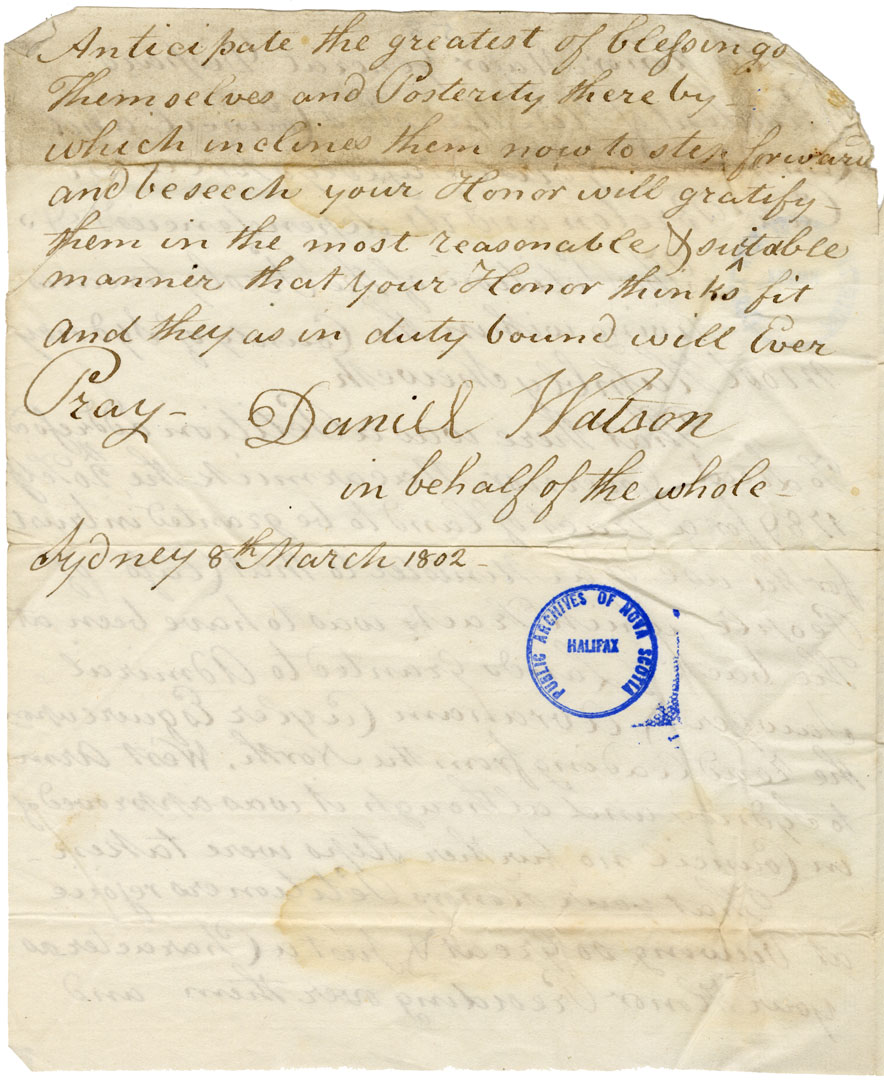 Anticipate the greatest of blessings
Themselves and Posterity there by -
which inclines them now to step forward
and beseech your Honor will gratify
them in the most reasonable & suitable
manner that your Honor thinks fit
and they as in duty bound will Ever
Pray - Daniell Watson
in behalf of the whole -
Sydney 8th March 1802 -
PUBLIC ARCHIVES OF NOVA SCOTIA
HALIFAX